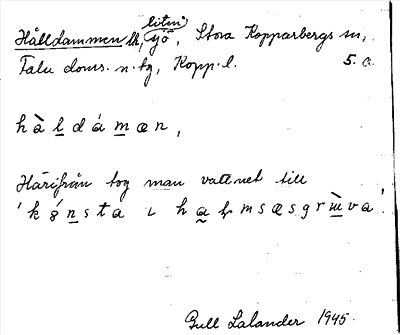 Hålldammen lk, liten sjö, Stora Kopparbergs sn,
Falu doms. n. tg, Kopp. l. 5. a.
h à l d á m æ n,
Härifrån tog man vattnet till
'k ǿ n s t a ɩ h a f m s æ s g r ù v a'.
Gull Lalander 1945.